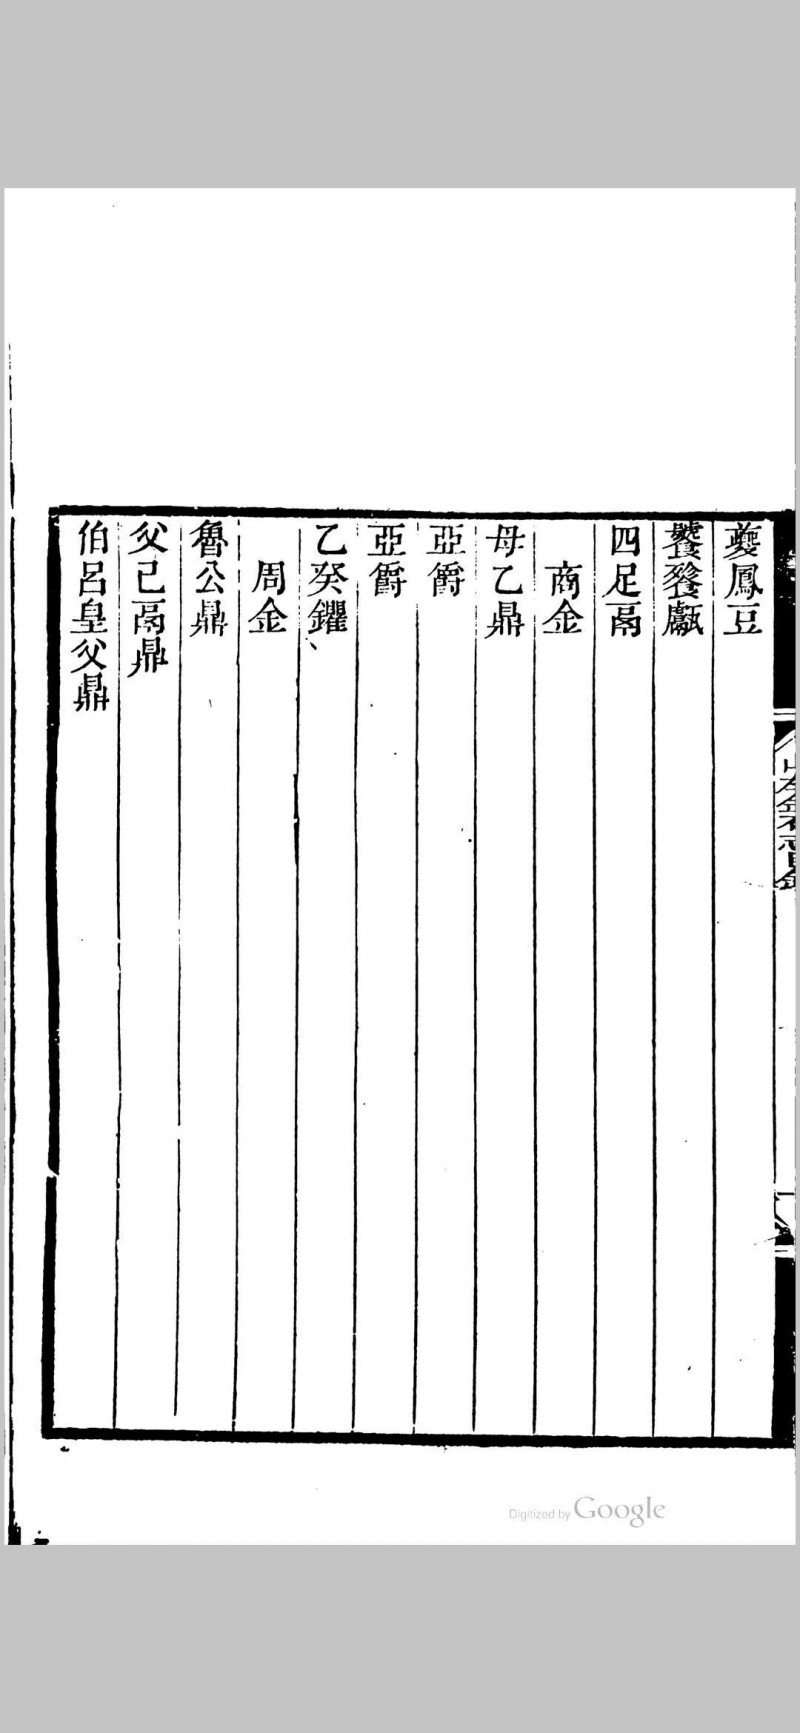 夔鳳豆
饕餮甗
四足鬲
商金
母乙鼎
亞爵
亞爵
乙癸鑺
周金
魯公鼎
父己鬲鼎
伯呂皇父鼎
山左金石志目錄
Digitized by Google